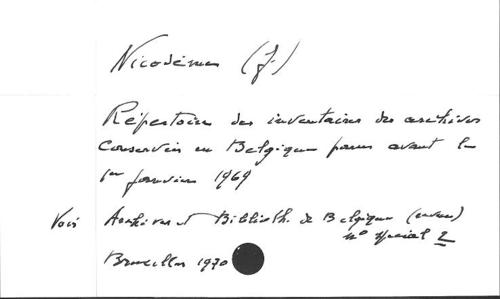 Nicodème (J.)
Répertoire des inventaires des archives
conservées en Belgique parus avant le
1er janvier 1969
Voir Archives et Biblioth. de Belgique (revue)
n° spécial 2
Bruxelles 1970